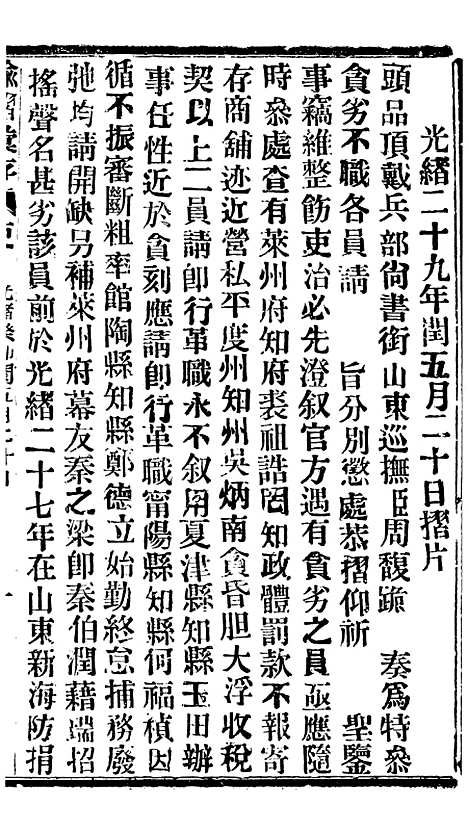 光緒二十九年閏五月二十日摺片
頭品頂戴兵部尚書銜山東巡撫臣周馥跪　奏爲特叅
貪劣不職各員請　旨分別懲處恭摺仰祈　聖鑒
事竊維整飭吏治必先澄叙官方遇有貪劣之員亟應隨
時叅處查有萊州府知府裘祖誥罔知政體罰款不報寄
存商舖迹近營私平度州知州吳炳南貪昏胆大浮收税
契以上二員請即行革職永不叙用夏津縣知縣玉田辦
事任性近於貪刻應請即行革職甯陽縣知縣何福楨因
循不振審斷粗率館陶縣知縣鄭德立始勤終怠捕務廢
弛均請開缺另補萊州府幕友秦之梁即秦伯潤藉端招
搖聲名甚劣該員前於光緒二十七年在山東新海防捐
諭摺彙存
光緒癸卯閏五月二十日